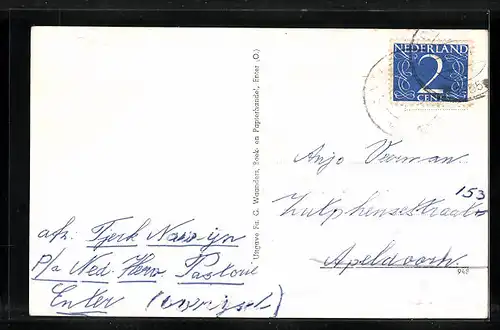 NEDERLAND
2
CENT
Uitgave Fa. G. Waanders, Boek- en Papierhandel, Enter (O.)
Anjo Veerman
153
Zutphensestraat
Apeldoorn
948
afz. Tjerk
P/a Ned. Herv. Pastorie
Enter (Overijsel)